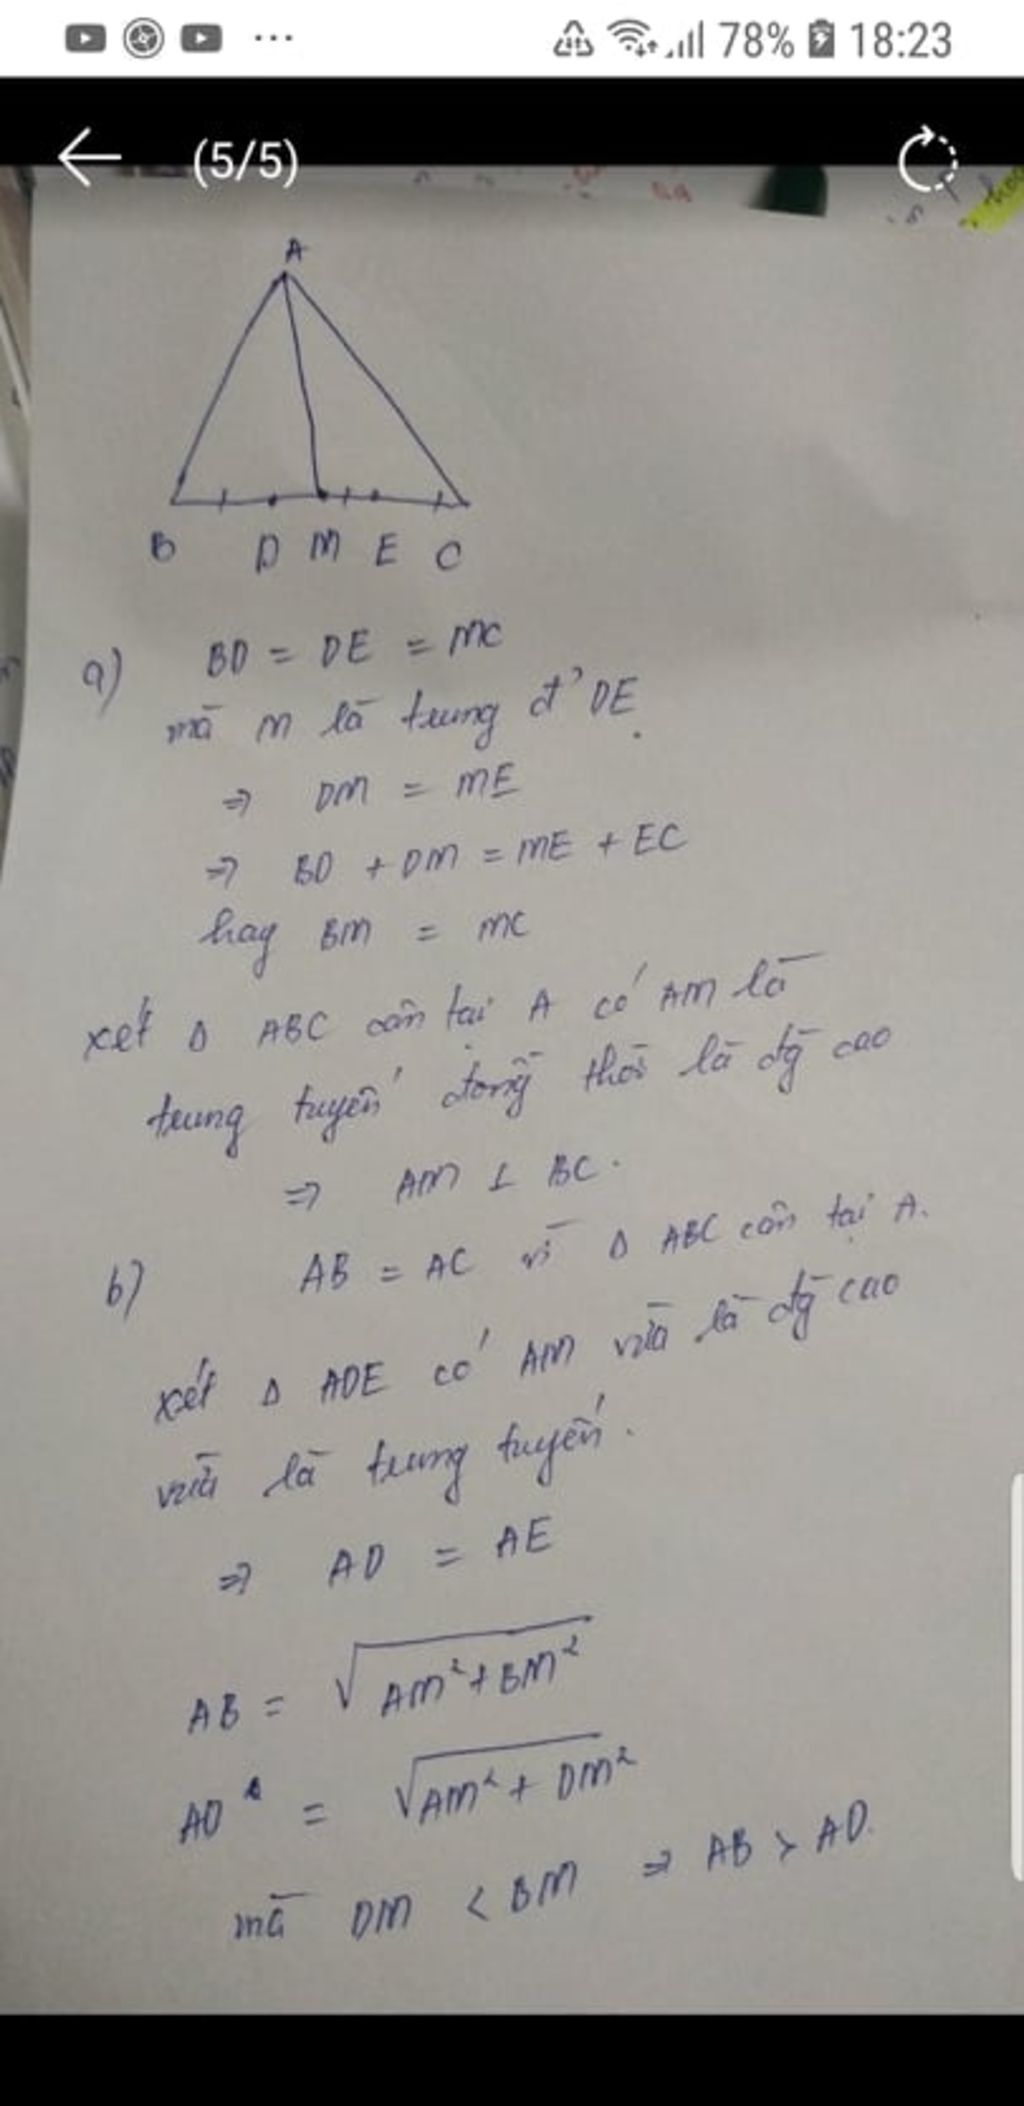 78% 18:23
(5/5)
A
B D M E C
a) BD = DE = MC
mà M là trung đ' DE.
⇒ DM = ME
⇒ BD + DM = ME + EC
hay BM = MC
xét Δ ABC cân tại A có AM là
trung tuyến đồng thời là đg cao
⇒ AM ⊥ BC.
b) AB = AC vì Δ ABC cân tại A.
xét Δ ADE có AM vừa là đg cao
vừa là trung tuyến.
⇒ AD = AE
AB = √AM² + BM²
AD = √AM² + DM²
mà DM < BM ⇒ AB > AD.